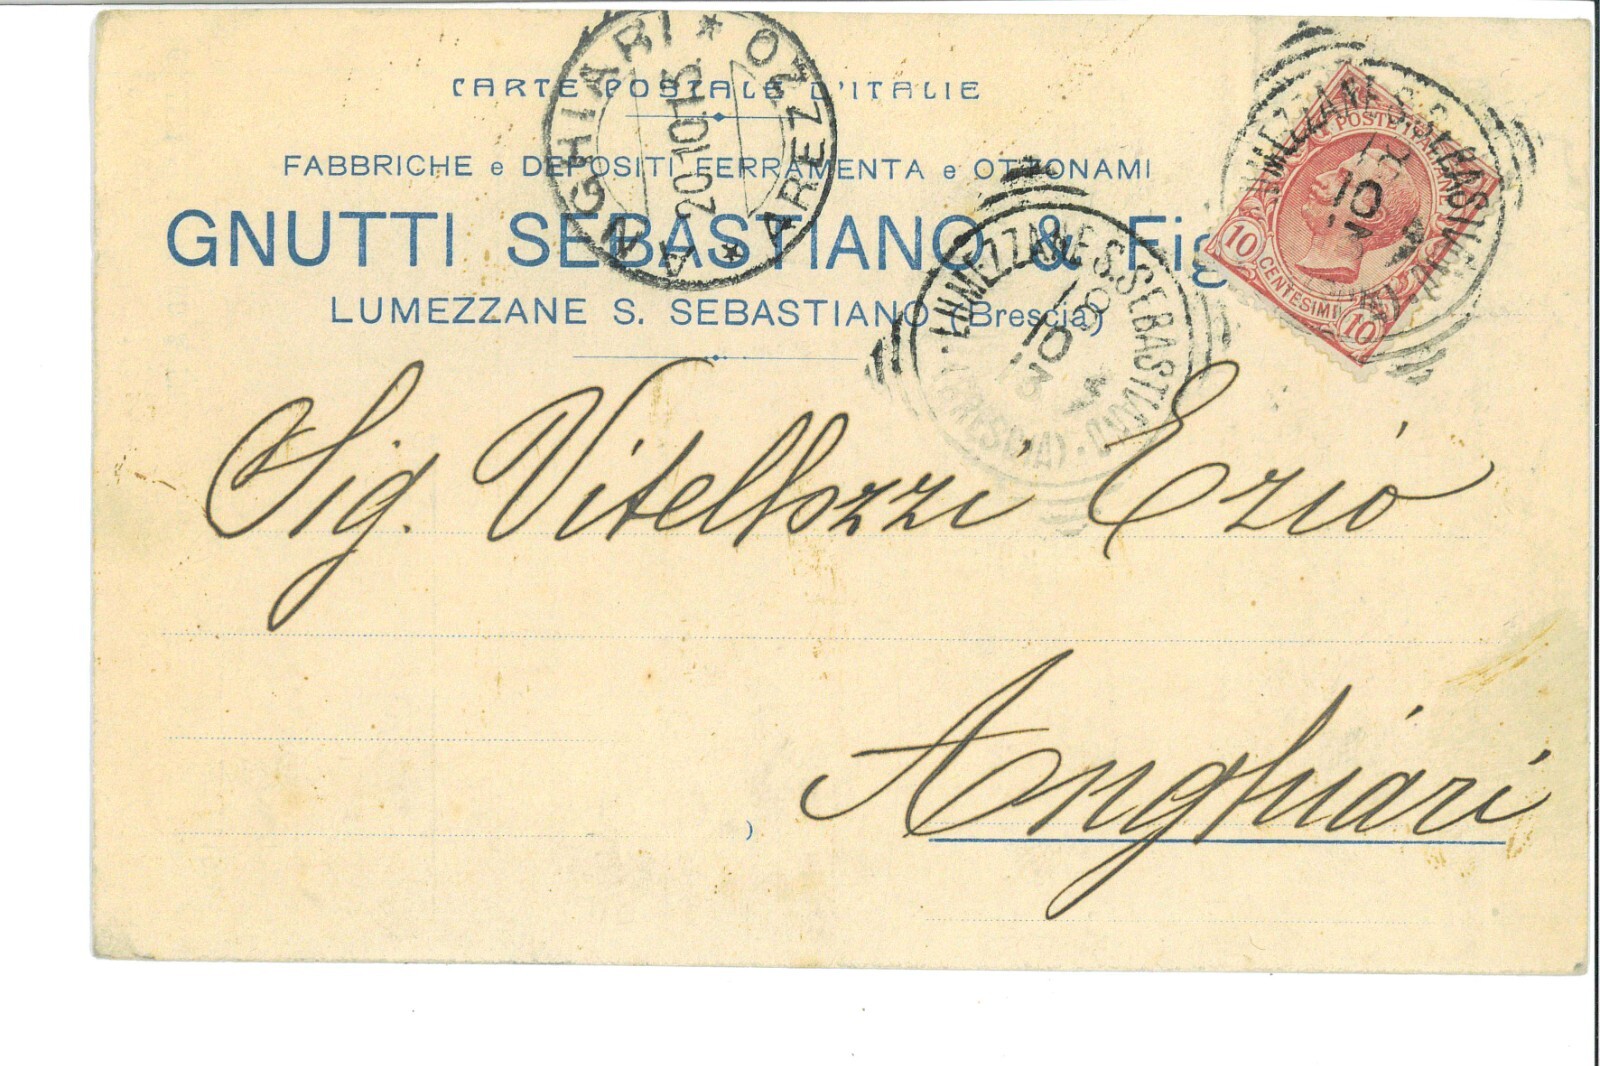 CARTE POSTALE D'ITALIE
FABBRICHE e DEPOSITI FERRAMENTA e OTTONAMI
GNUTTI SEBASTIANO & Fig
LUMEZZANE S. SEBASTIANO (Brescia)
ANGHIARI * AREZZO *
20.10.13
LUMEZZANE S. SEBASTIANO
(BRESCIA)
18
10
13
POSTE ITALIANE
10 CENTESIMI 10
LUMEZZANE S. SEBASTIANO
18
10
13
Sig. Vitellozzi Ezio
Anghiari